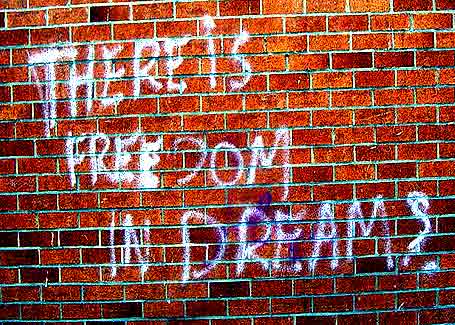 THERE iS
FREEDOM
IN DREAMS